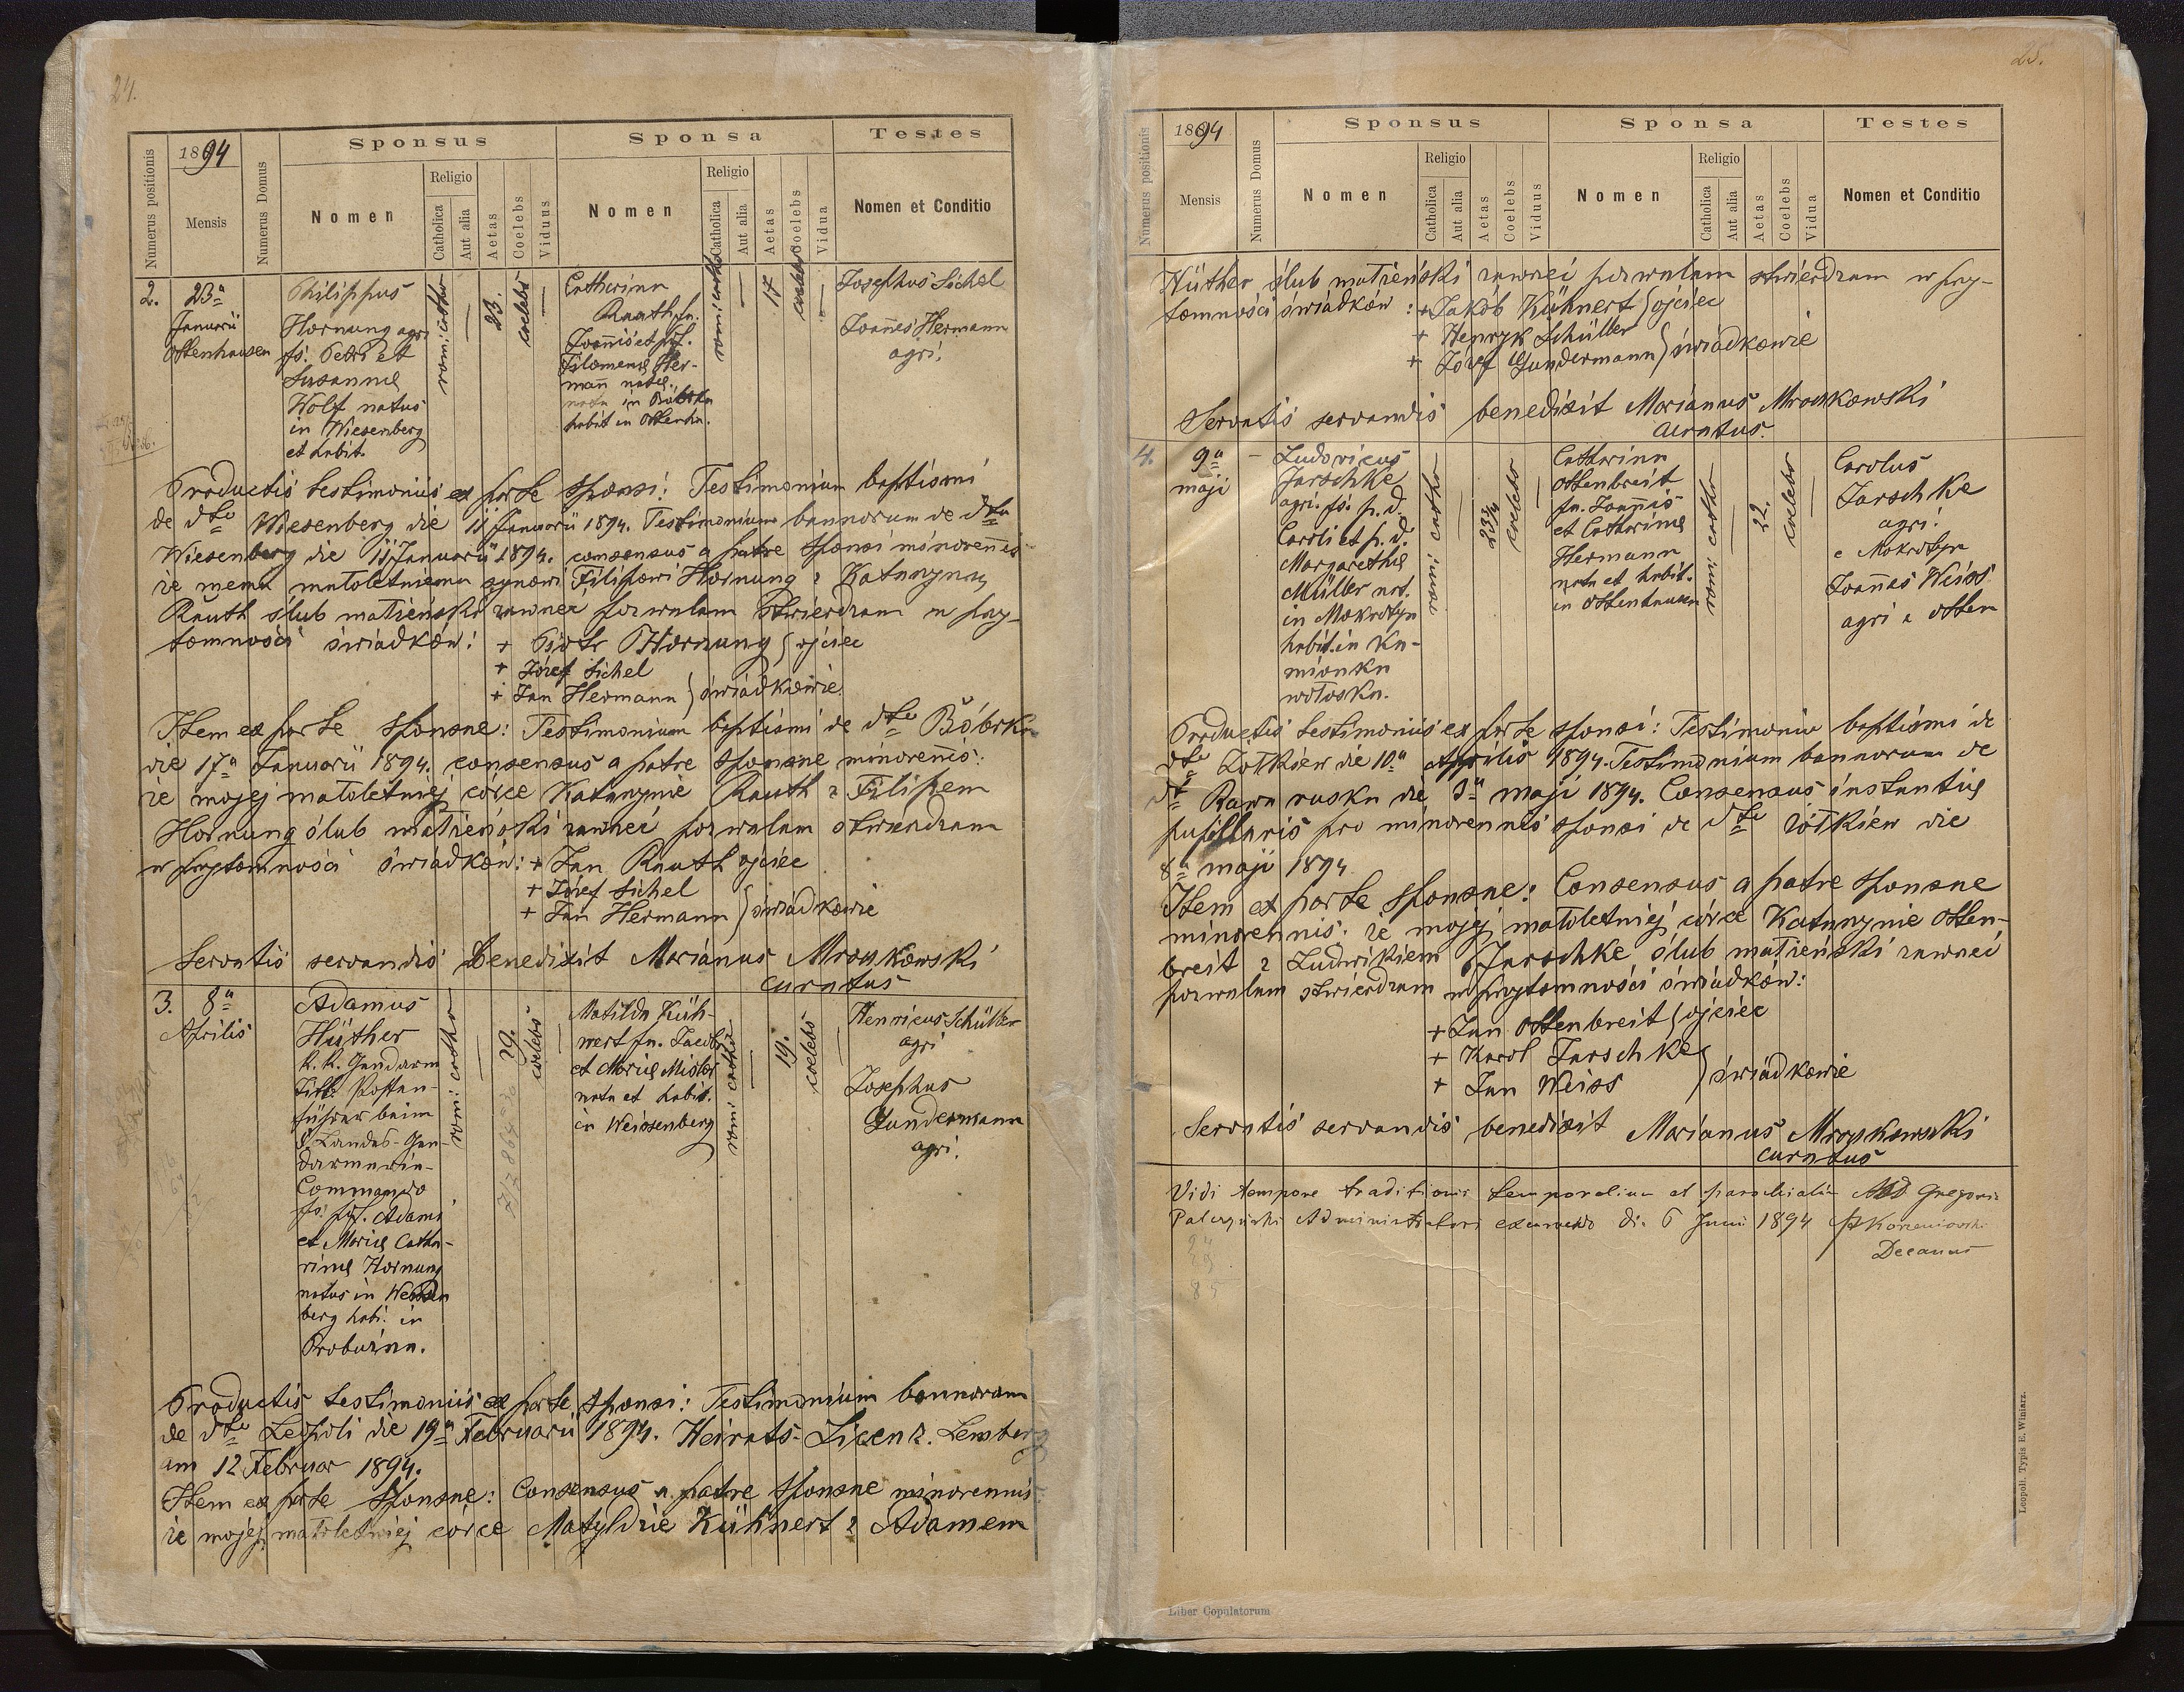 24.
Numerus positionis
1894
Mensis
Numerus Domus
Sponsus
Nomen
Religio
Catholica
Aut alia
Aetas
Coelebs
Viduus
Sponsa
Nomen
Religio
Catholica
Aut alia
Aetas
Coelebs
Vidua
Testes
Nomen et Conditio
2.
23a
Januarii
Ottenhausen
Philippus
Hornung agri.
fs. Petri et
Susannae
Wolf natus
in Wiesenberg
et habit.
rom: catho
23.
coelebs
Catharina
Rauth fa.
Joannis et
Filomenae Her-
mann
nata in Bóbrka
habit in Ottenha.
rom: catho
17
coelebs
Josephus Sichel
Joannes Hermann
agri.
Productis testimoniis ex parte sponsi: Testimonium baptismi
de dto Wiesenberg die 11 Januarii 1894. Testimonium bannorum de dto
Wiesenberg die 11 Januarii 1894. consensus a patre sponsi minorennis
że memu małoletniemu synowi Filipowi Hornung z Katarzyną
Rauth ślub małżeński zawrzeć pozwalam stwierdzam w przy-
tomności świadków: + Piotr Hornung } ojciec
+ Józef Sichel
+ Jan Hermann } świadkowie
Item ex parte sponsae: Testimonium baptismi de dto Bóbrka
die 17a Januarii 1894. consensus a patre sponsae minorennis:
że mojej małoletniej córce Katarzynie Rauth z Filipem
Hornung ślub małżeński zawrzeć pozwalam stwierdzam
w przytomności świadków: + Jan Rauth ojciec
+ Józef Sichel
+ Jan Hermann } świadkowie
Servatis servandis benedixit Marianus Mroczkowski
curatus
3.
8a
Aprilis
Adamus
Hüther
K. K. Gendarm
Titl: Posten-
führer beim
Landes-Gen-
darmerie-
Commando
fs. Adami
et Mariae Catha-
rinae Hornung
natus in Weissen
berg hab. in
Probużna.
rom: catho
29.
coelebs
Matilda Küh-
nert fa. Jacobi
et Mariae Misler
nata et habit.
in Weissenberg
rom: catho
19.
coelebs
Henricus Schüller
agri
Josephus
Gundermann
agri.
Productis testimoniis ex parte sponsi: Testimonium bannorum
de dto Leopoli die 19a Februarii 1894. Heirats-Licenz. Lemberg
am 12 Februar 1894.
Item ex parte sponsae: Consensus a patre sponsae minorennis
że mojej małoletniej córce Matyldzie Kühnert z Adamem
25.
Numerus positionis
1894
Mensis
Numerus Domus
Sponsus
Nomen
Religio
Catholica
Aut alia
Aetas
Coelebs
Viduus
Sponsa
Nomen
Religio
Catholica
Aut alia
Aetas
Coelebs
Vidua
Testes
Nomen et Conditio
Hüther ślub małżeński zawrzeć pozwalam stwierdzam w przy-
tomności świadków: + Jakób Kühnert } ojciec
+ Henryk Schüller
+ Józef Gundermann } świadkowie
Servatis servandis benedixit Marianus Mroczkowski
curatus.
4.
9a
maji
Ludovicus
Jarschke
agri. fs. p. d.
Caroli et p. d.
Margarethae
Müller nat.
in Mokrotyn
habit. in Ka-
mionka
wołoska.
rom: catho
23 3/4
coelebs
Catharina
Ottenbreit
fa. Joannis
et Catharinae
Hermann
nata et habit.
in Ottenhausen
rom: catho
22.
coelebs
Carolus
Jarschke
agri.
e Mokrotyn
Joannes Weiss
agri e Otten
Productis testimoniis ex parte sponsi: Testimonio baptismi de
dto Żółkiew die 10a Aprilis 1894. Testimonium bannorum de
dt Rawa ruska die 3a maji 1894. Consensus instantiae
pupillaris pro minorennis sponsi de dto Żółkiew die
8a maji 1894
Item ex parte sponsae: Consensus a patre sponsae
minorennis. że mojej małoletniej córce Katarzynie Otten-
breit z Ludwikiem Jarschke ślub małżeński zawrzeć
pozwalam stwierdzam w przytomności świadków:
+ Jan Ottenbreit } ojciec
+ Karol Jarschke
+ Jan Weiss } świadkowie
Servatis servandis benedixit Marianus Mroczkowski
curatus
Vidi tempore traditionis temporalium et parochialium Gregorio
Administratori die 6 Junii 1894
Decanus
85
Liber Copulatorum
Leopoli. Typis E. Winiarz.